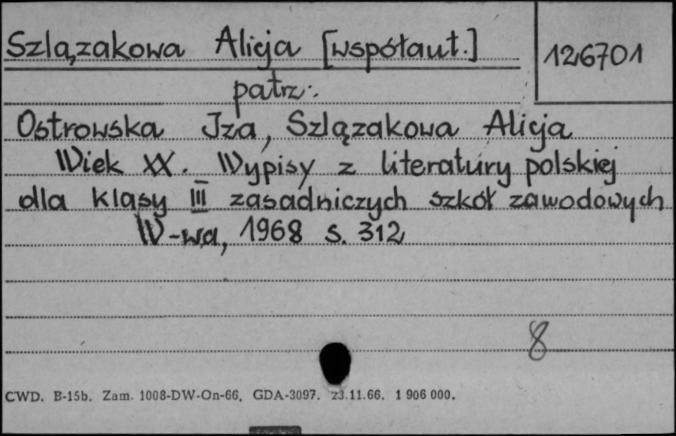 Szlązakowa Alicja [współaut.]
126701
patrz:
Ostrowska Iza, Szlązakowa Alicja
Wiek XX. Wypisy z literatury polskiej
dla klasy III zasadniczych szkół zawodowych
W-wa, 1968 s. 312
8
CWD. B-15b. Zam. 1008-DW-On-66. GDA-3097. 23.11.66. 1 906 000.